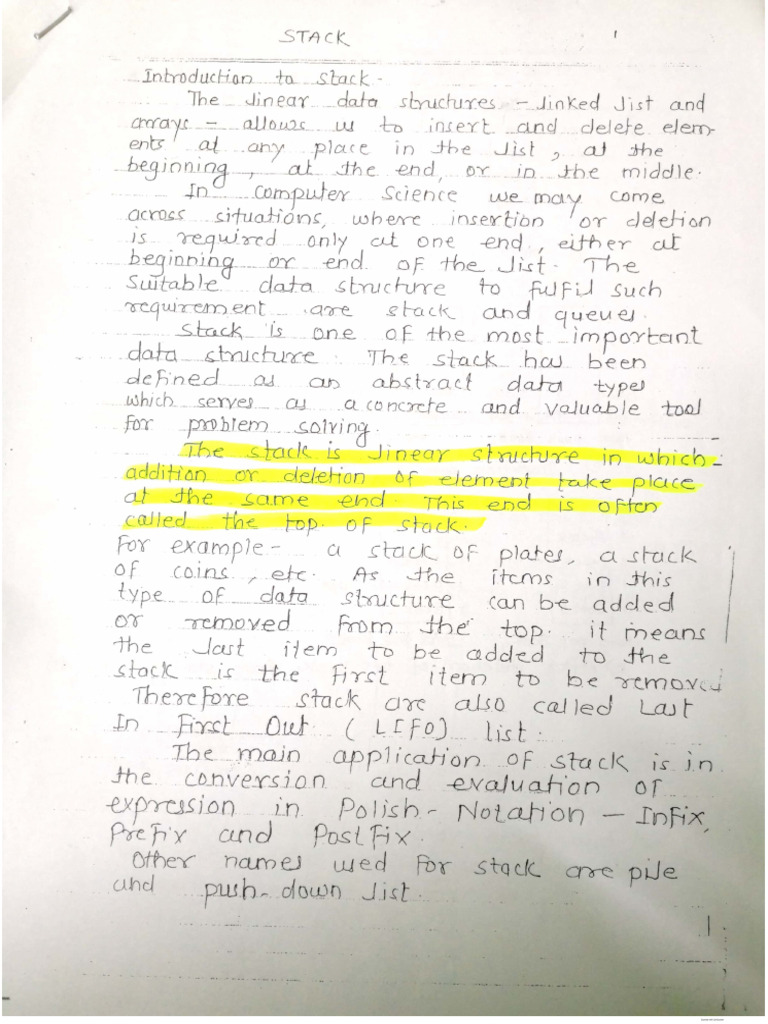 STACK 1
Introduction to stack -
The linear data structures - linked list and
arrays - allows us to insert and delete elem-
ents at any place in the list, at the
beginning, at the end, or in the middle.
In computer Science we may come
across situations, where insertion or deletion
is required only at one end, either at
beginning or end of the list. The
suitable data structure to fulfil such
requirement are stack and queues.
Stack is one of the most important
data structure. The stack has been
defined as an abstract data types
which serves as a concrete and valuable tool
for problem solving.
The stack is linear structure in which
addition or deletion of element take place
at the same end. This end is often
called the top of stack.
For example - a stack of plates, a stack
of coins, etc. As the items in this
type of data structure can be added
or removed from the top. it means
the last item to be added to the
stack is the first item to be removed
Therefore stack are also called Last
In First Out (LIFO) list.
The main application of stack is in
the conversion and evaluation of
expression in Polish - Notation - Infix,
Prefix and Postfix.
Other names used for stack are pile
and push-down list.